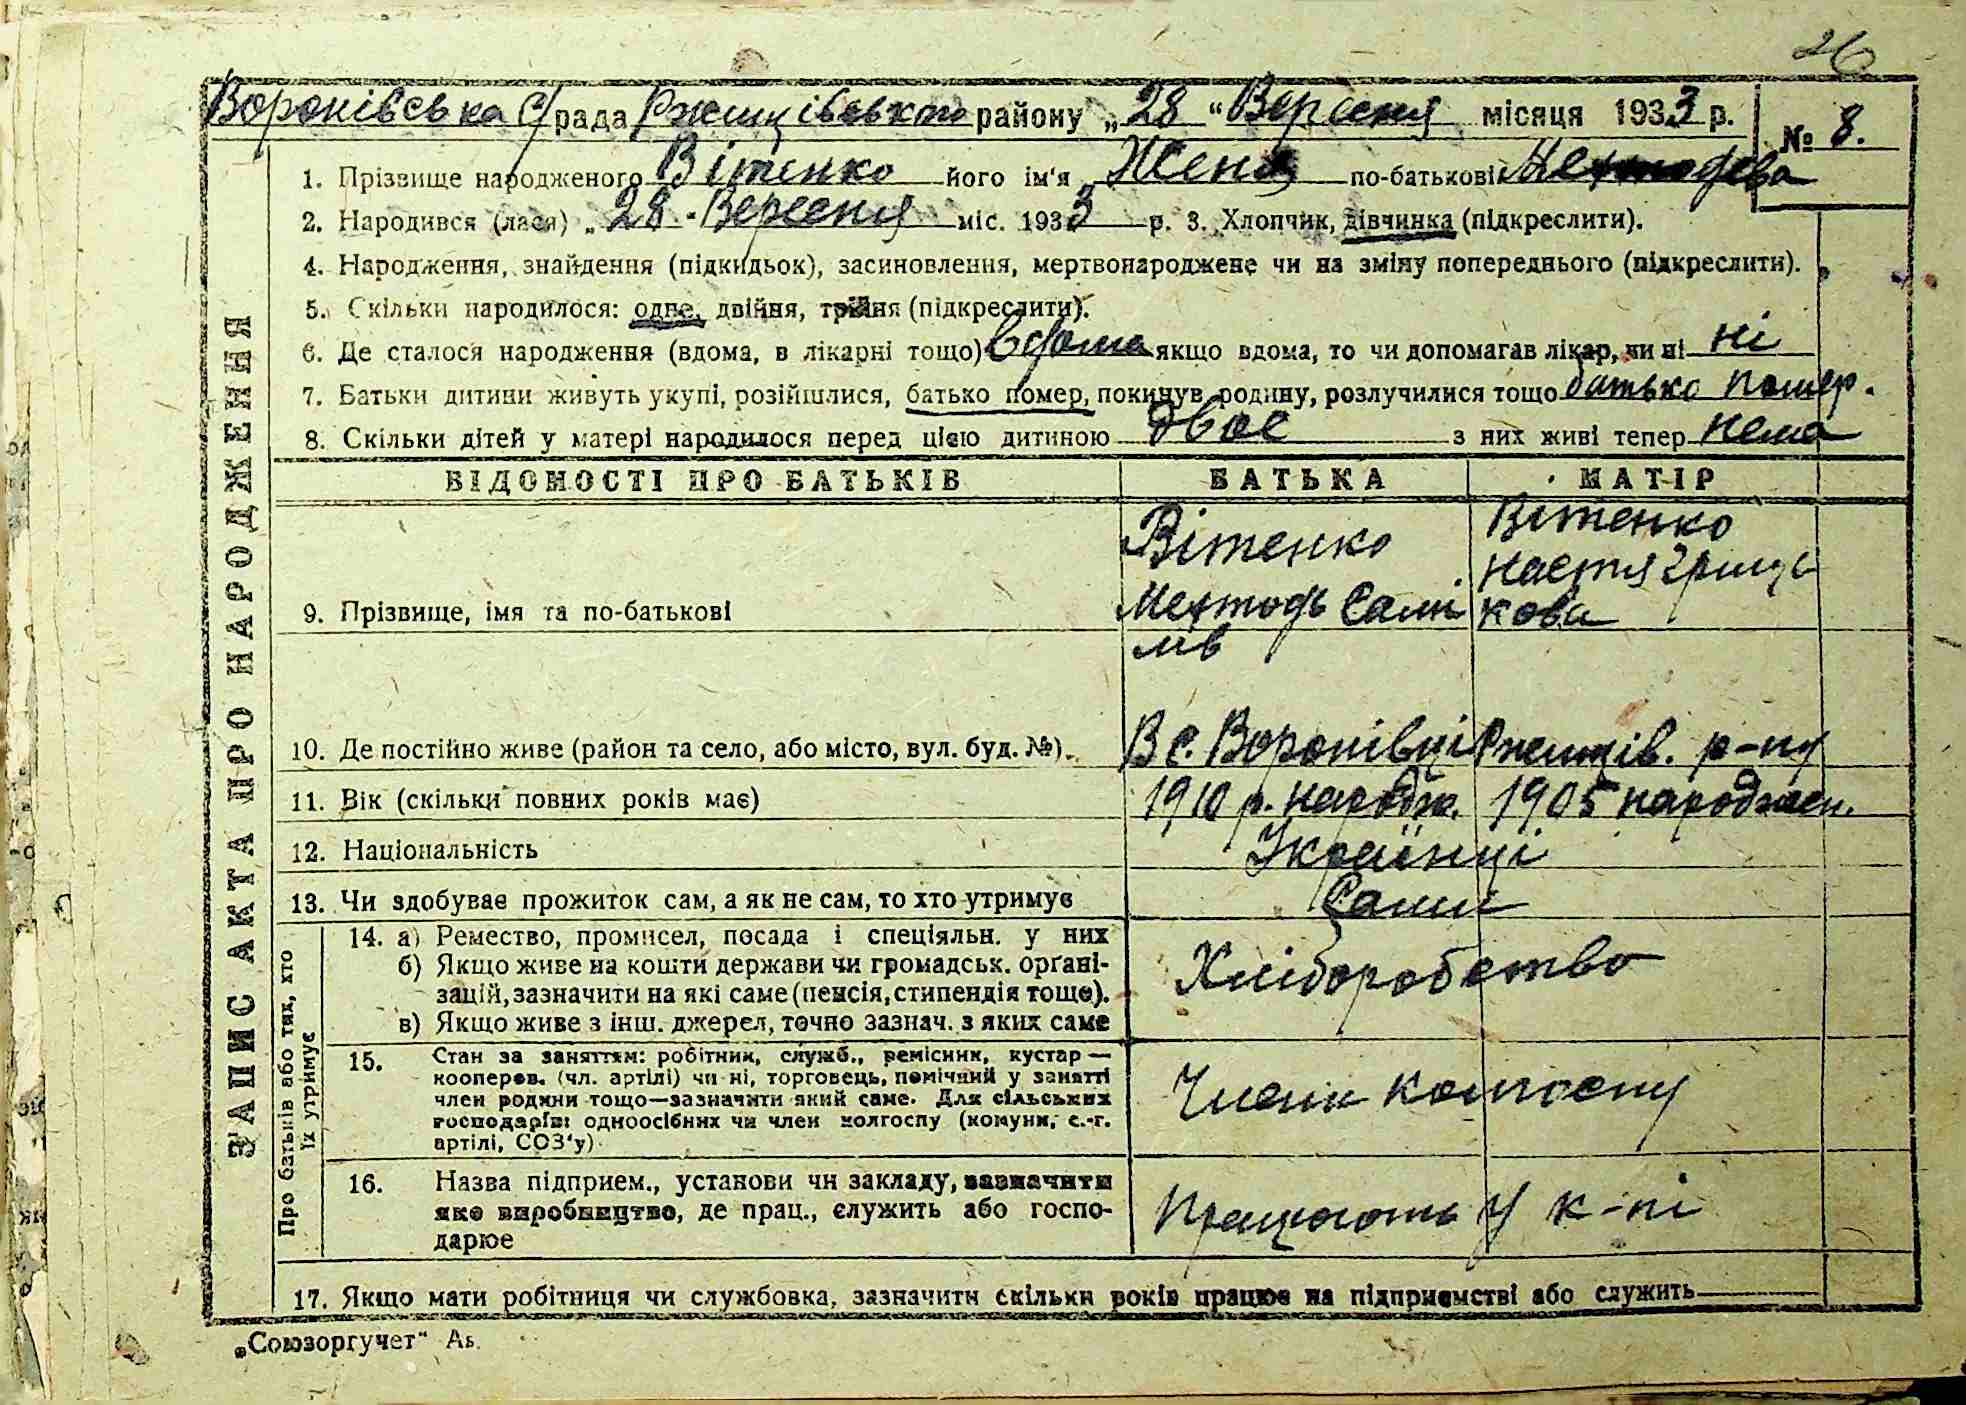 26
Воронівська с/рада Ржищівського району „28“ Вересня місяця 1933 р.
№ 8.
1. Прізвище народженого Вітенко його ім'я Женя по-батькові Методева
2. Народився (лася) „28 - Вересня міс. 1933 р. 3. Хлопчик, дівчинка (підкреслити).
4. Народження, знайдення (підкидьок), засиновлення, мертвонароджене чи на зміну попереднього (підкреслити).
5. Скільки народилося: одне, двійня, трійня (підкреслити).
6. Де сталося народження (вдома, в лікарні тощо) вдома якщо вдома, то чи допомагав лікар, чи ні ні
7. Батьки дитини живуть укупі, розійшлися, батько помер, покинув родину, розлучилися тощо батько помер.
8. Скільки дітей у матері народилося перед цією дитиною двоє з них живі тепер нема
ЗАПИС АКТА ПРО НАРОДЖЕННЯ
ВІДОМОСТІ ПРО БАТЬКІВ БАТЬКА МАТІР
9. Прізвище, імя та по-батькові
Вітенко
Методь Самі
лів
Вітенко
Настя Гриць
кова
10. Де постійно живе (район та село, або місто, вул. буд. №). В с. Воронівці Ржищів. р-ну
11. Вік (скільки повних років має) 1910 р. народж. 1905 народжен.
12. Національність Українці
13. Чи здобуває прожиток сам, а як не сам, то хто утримує Сами
Про батьків або тих, хто
їх утримує
14. а) Ремество, промисел, посада і спеціяльн. у них
б) Якщо живе на кошти держави чи громадськ. органі-
зацій, зазначити на які саме (пенсія, стипендія тощо).
в) Якщо живе з інш. джерел, точно зазнач. з яких саме
Хліборобство
15. Стан за заняттям: робітник, служб., ремісник, кустар —
кооперов. (чл. артілі) чи ні, торговець, помічний у занятті
член родини тощо—зазначити який саме. Для сільських
господарів: одноосібних чи член колгоспу (комуни, с.-г.
артілі, СОЗ'у)
Члени колгоспу
16. Назва підприєм., установи чи закладу, зазначити
яке виробництво, де прац., служить або госпо-
дарює
Працюють у к-пі
17. Якщо мати робітниця чи службовка, зазначити скільки років працює на підприємстві або служить
„Союзоргучет“